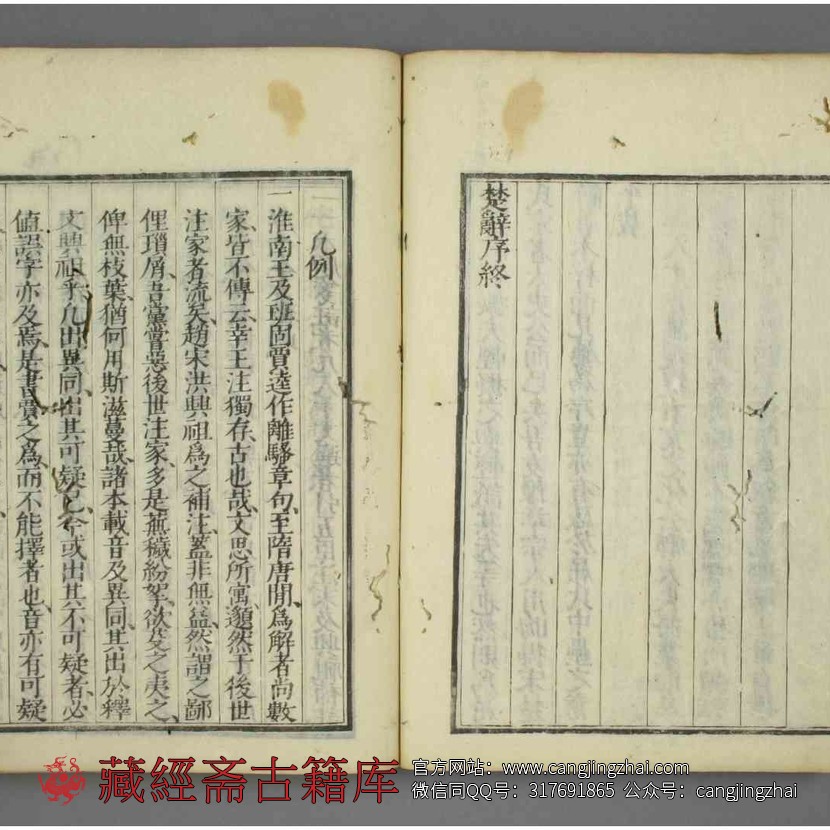 楚辭序終
凡例
一 淮南王及班固賈逵作離騷章句、至隋唐閒爲解者尚數
家、皆不傳云、幸王注獨存、古也哉、文思所寓、邈然于後世
注家者流矣、趙宋洪興祖爲之補注、蓋非無益、然謂之鄙
俚瑣屑、吾黨嘗惡後世注家、多是蕪穢紛挐、欲芟之夷之、
俾無枝葉、猶何用斯滋蔓哉、諸本載音及異同、其出於釋
文興祖乎、凡出異同、出其可疑已、今或出其不可疑者、必
値誤字亦及焉、是書賈之爲而不能擇者也、音亦有可疑
藏經斋古籍库
官方网站：www.cangjingzhai.com
微信同QQ号：317691865 公众号：cangjingzhai